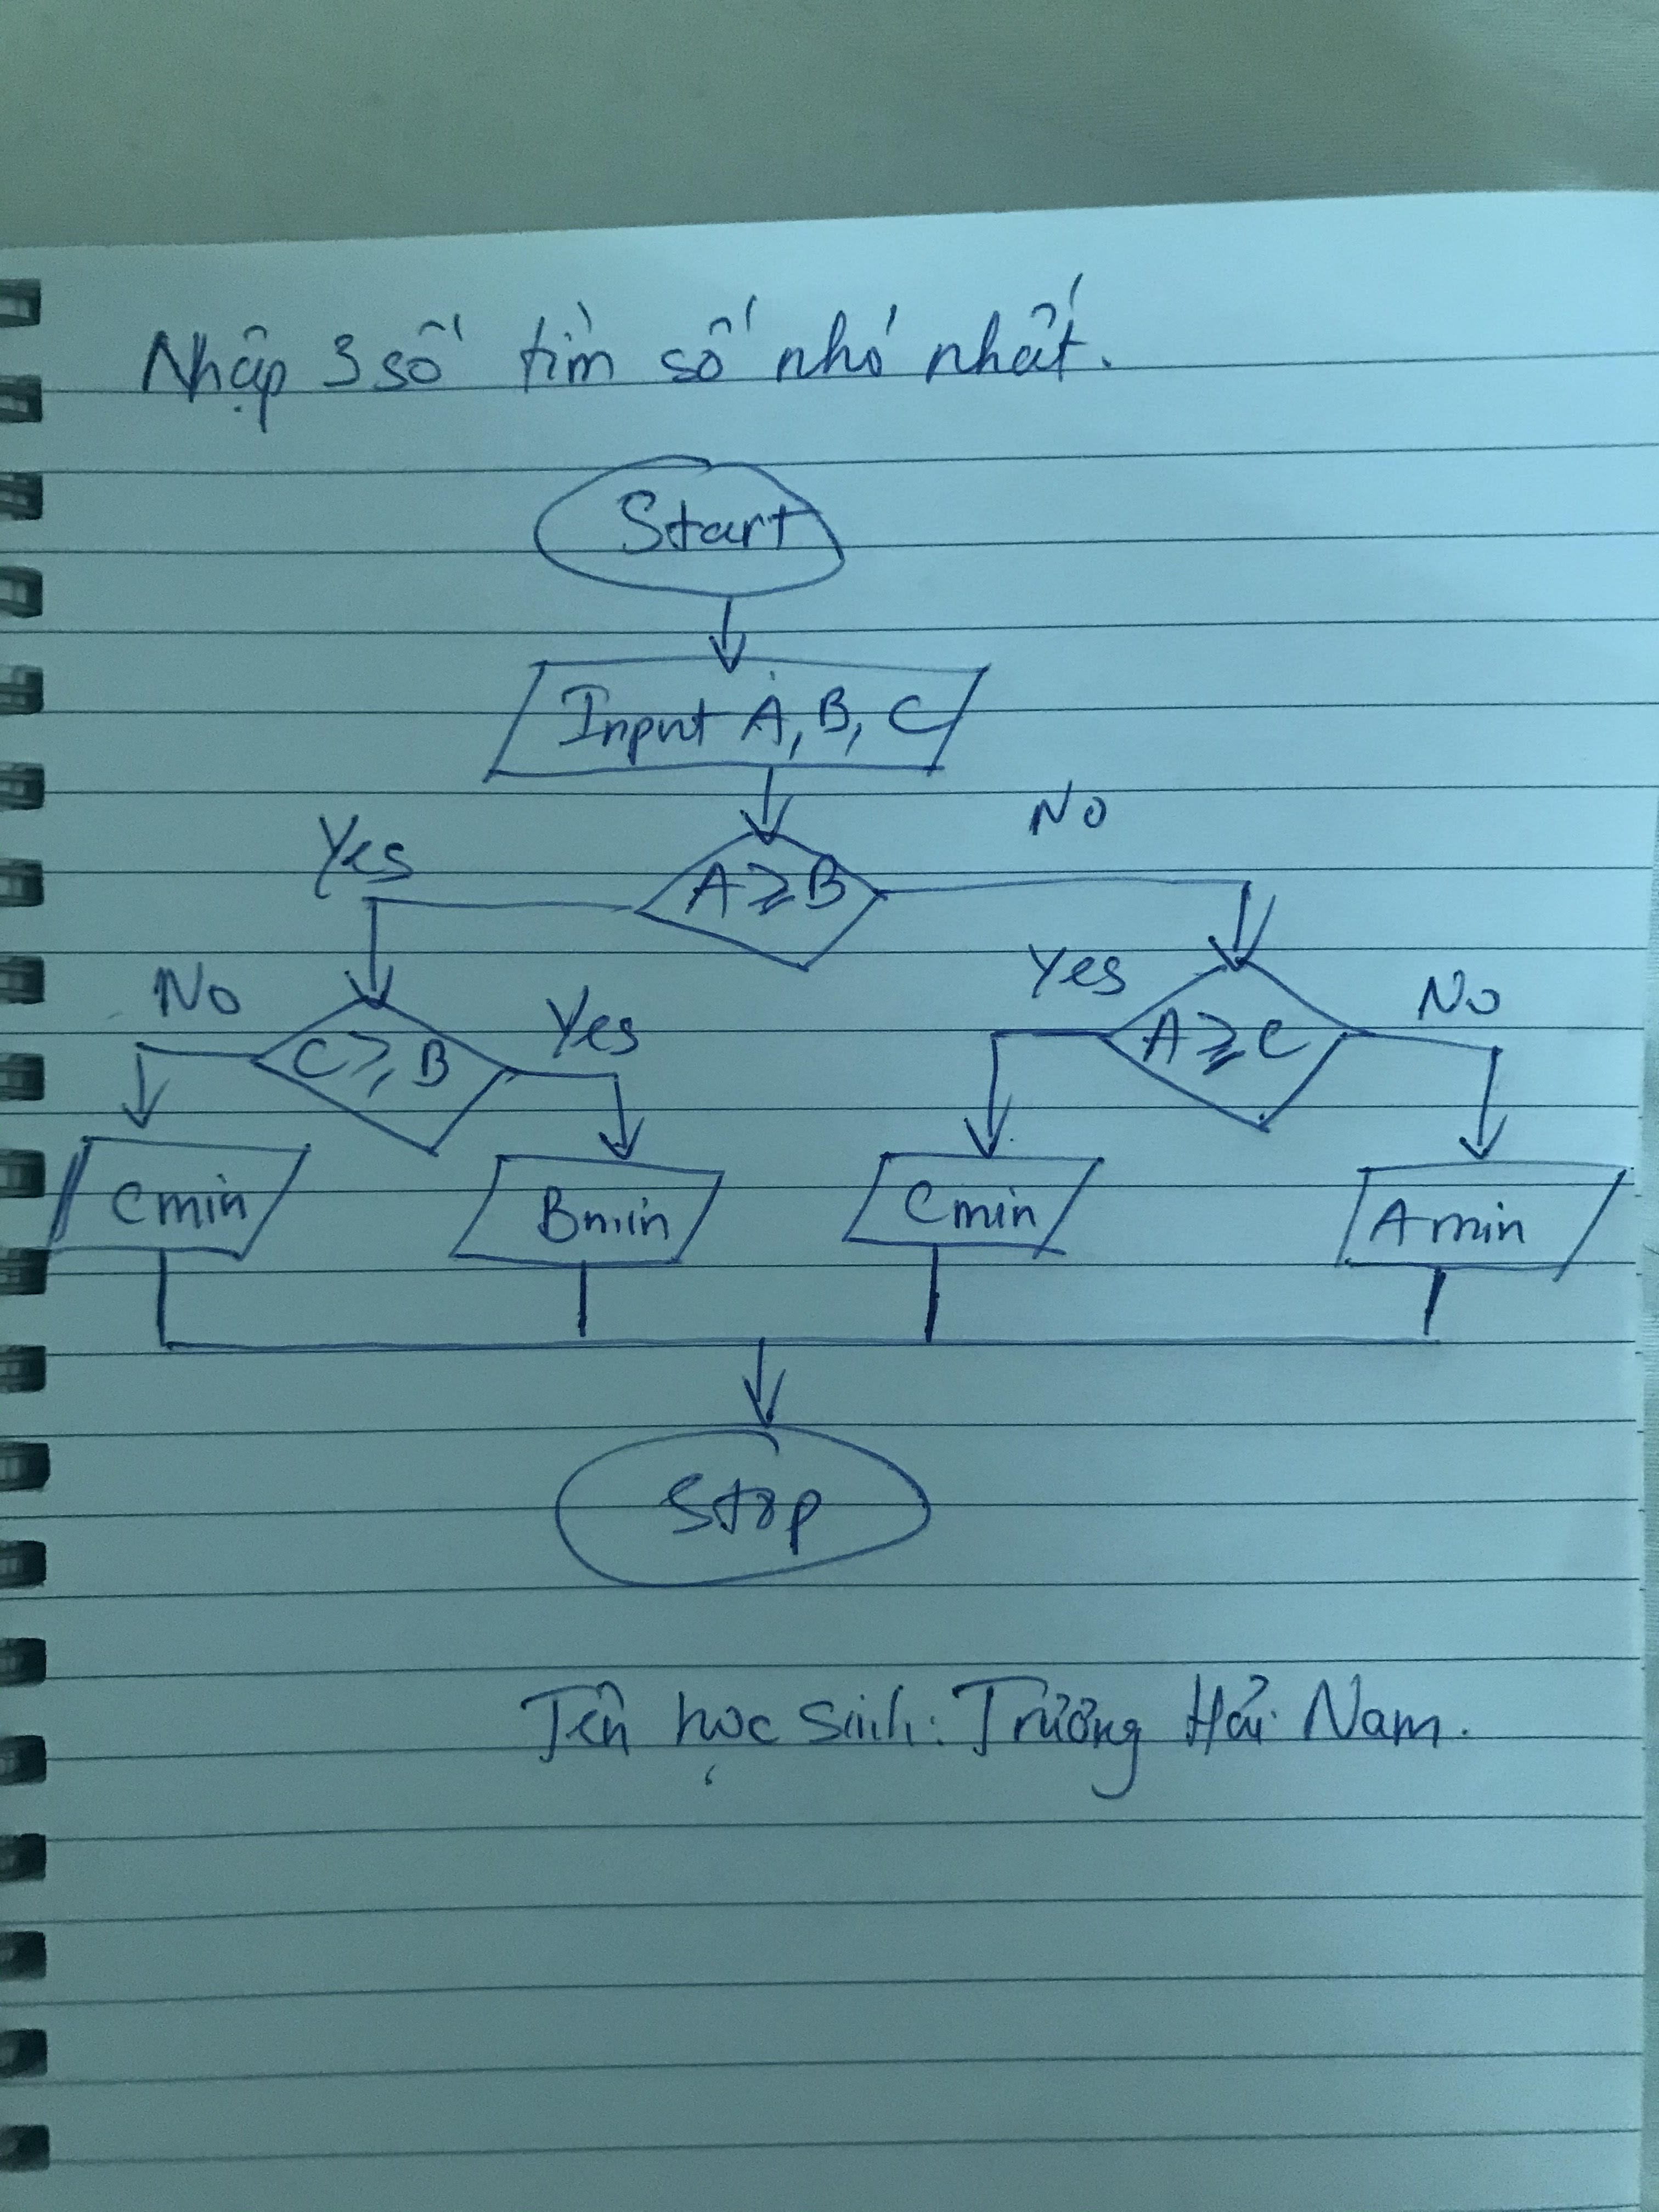 Nhập 3 số tìm số nhỏ nhất.
Start
Input A, B, C
Yes
No
A ≥ B
No
Yes
Yes
No
C ≥ B
A ≥ C
Cmin
Bmin
Cmin
Amin
Stop
Tên học sinh: Trương Hải Nam.